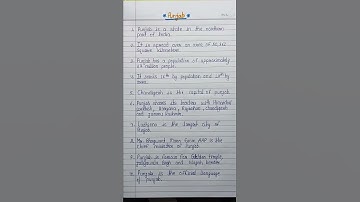 Punjab
1. Punjab is a state in the northern
part of India.
2. It is spread over an area of 50,362
square kilometers.
3. Punjab has a population of approximately
people.
4. It ranks 16th by population and 19th by
area.
5. Chandigarh is the capital of punjab.
6. Punjab shares its borders with Himachal
pradesh, Haryana, Rajasthan, chandigarh
and jammu kashmir.
7. Ludhiana is the largest city of
Punjab.
8. Mr. Bhagwant Mann from AAP is the
chief minister of Punjab.
9. Punjab is famous for Golden temple,
jallianwala bagh and Wagah border.
10. Punjabi is the official language
of Punjab.